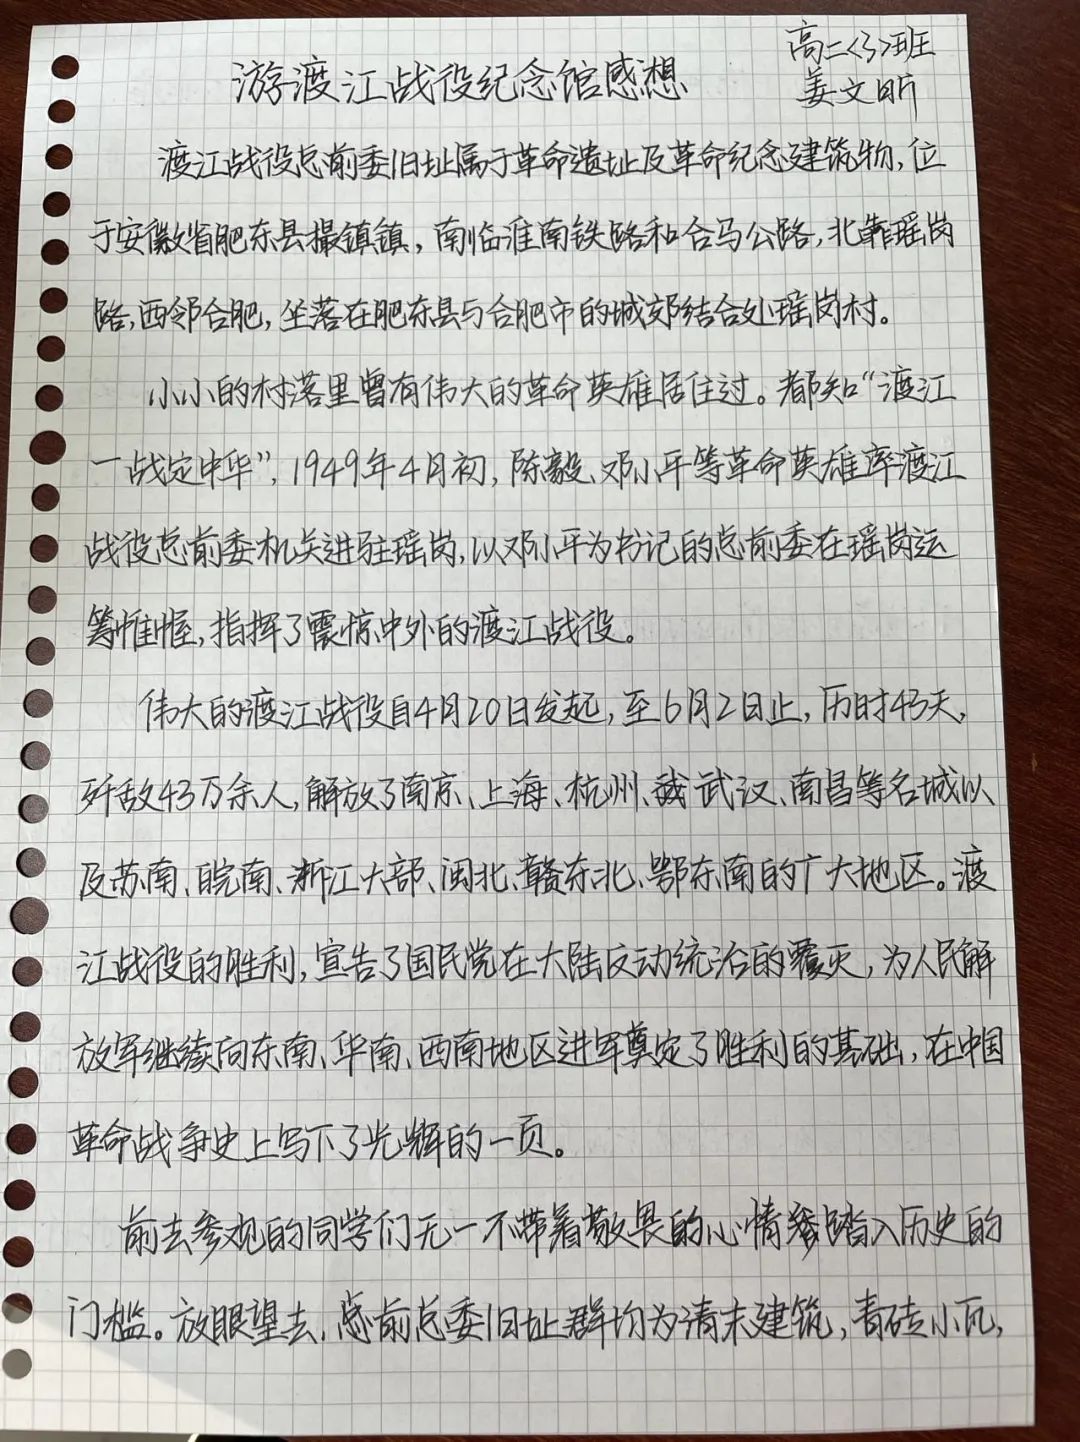 高二<3>班
游渡江战役纪念馆感想
姜文昕
渡江战役总前委旧址属于革命遗址及革命纪念建筑物,位
于安徽省肥东县撮镇镇,南临淮南铁路和合马公路,北靠瑶岗
路,西邻合肥,坐落在肥东县与合肥市的城郊结合处瑶岗村。
小小的村落里曾有伟大的革命英雄居住过。都知“渡江
一战定中华”,1949年4月初,陈毅、邓小平等革命英雄率渡江
战役总前委机关进驻瑶岗,以邓小平为书记的总前委在瑶岗运
筹帷幄,指挥了震惊中外的渡江战役。
伟大的渡江战役自4月20日发起,至6月2日止,历时43天,
歼敌43万余人,解放了南京、上海、杭州、武汉、南昌等名城以
及苏南、皖南、浙江大部、闽北、赣东北、鄂东南的广大地区。渡
江战役的胜利,宣告了国民党在大陆反动统治的覆灭,为人民解
放军继续向东南、华南、西南地区进军奠定了胜利的基础,在中国
革命战争史上写下了光辉的一页。
前去参观的同学们无一不带着敬畏的心情踏入历史的
门槛。放眼望去,总前总委旧址群均为清末建筑,青砖小瓦,